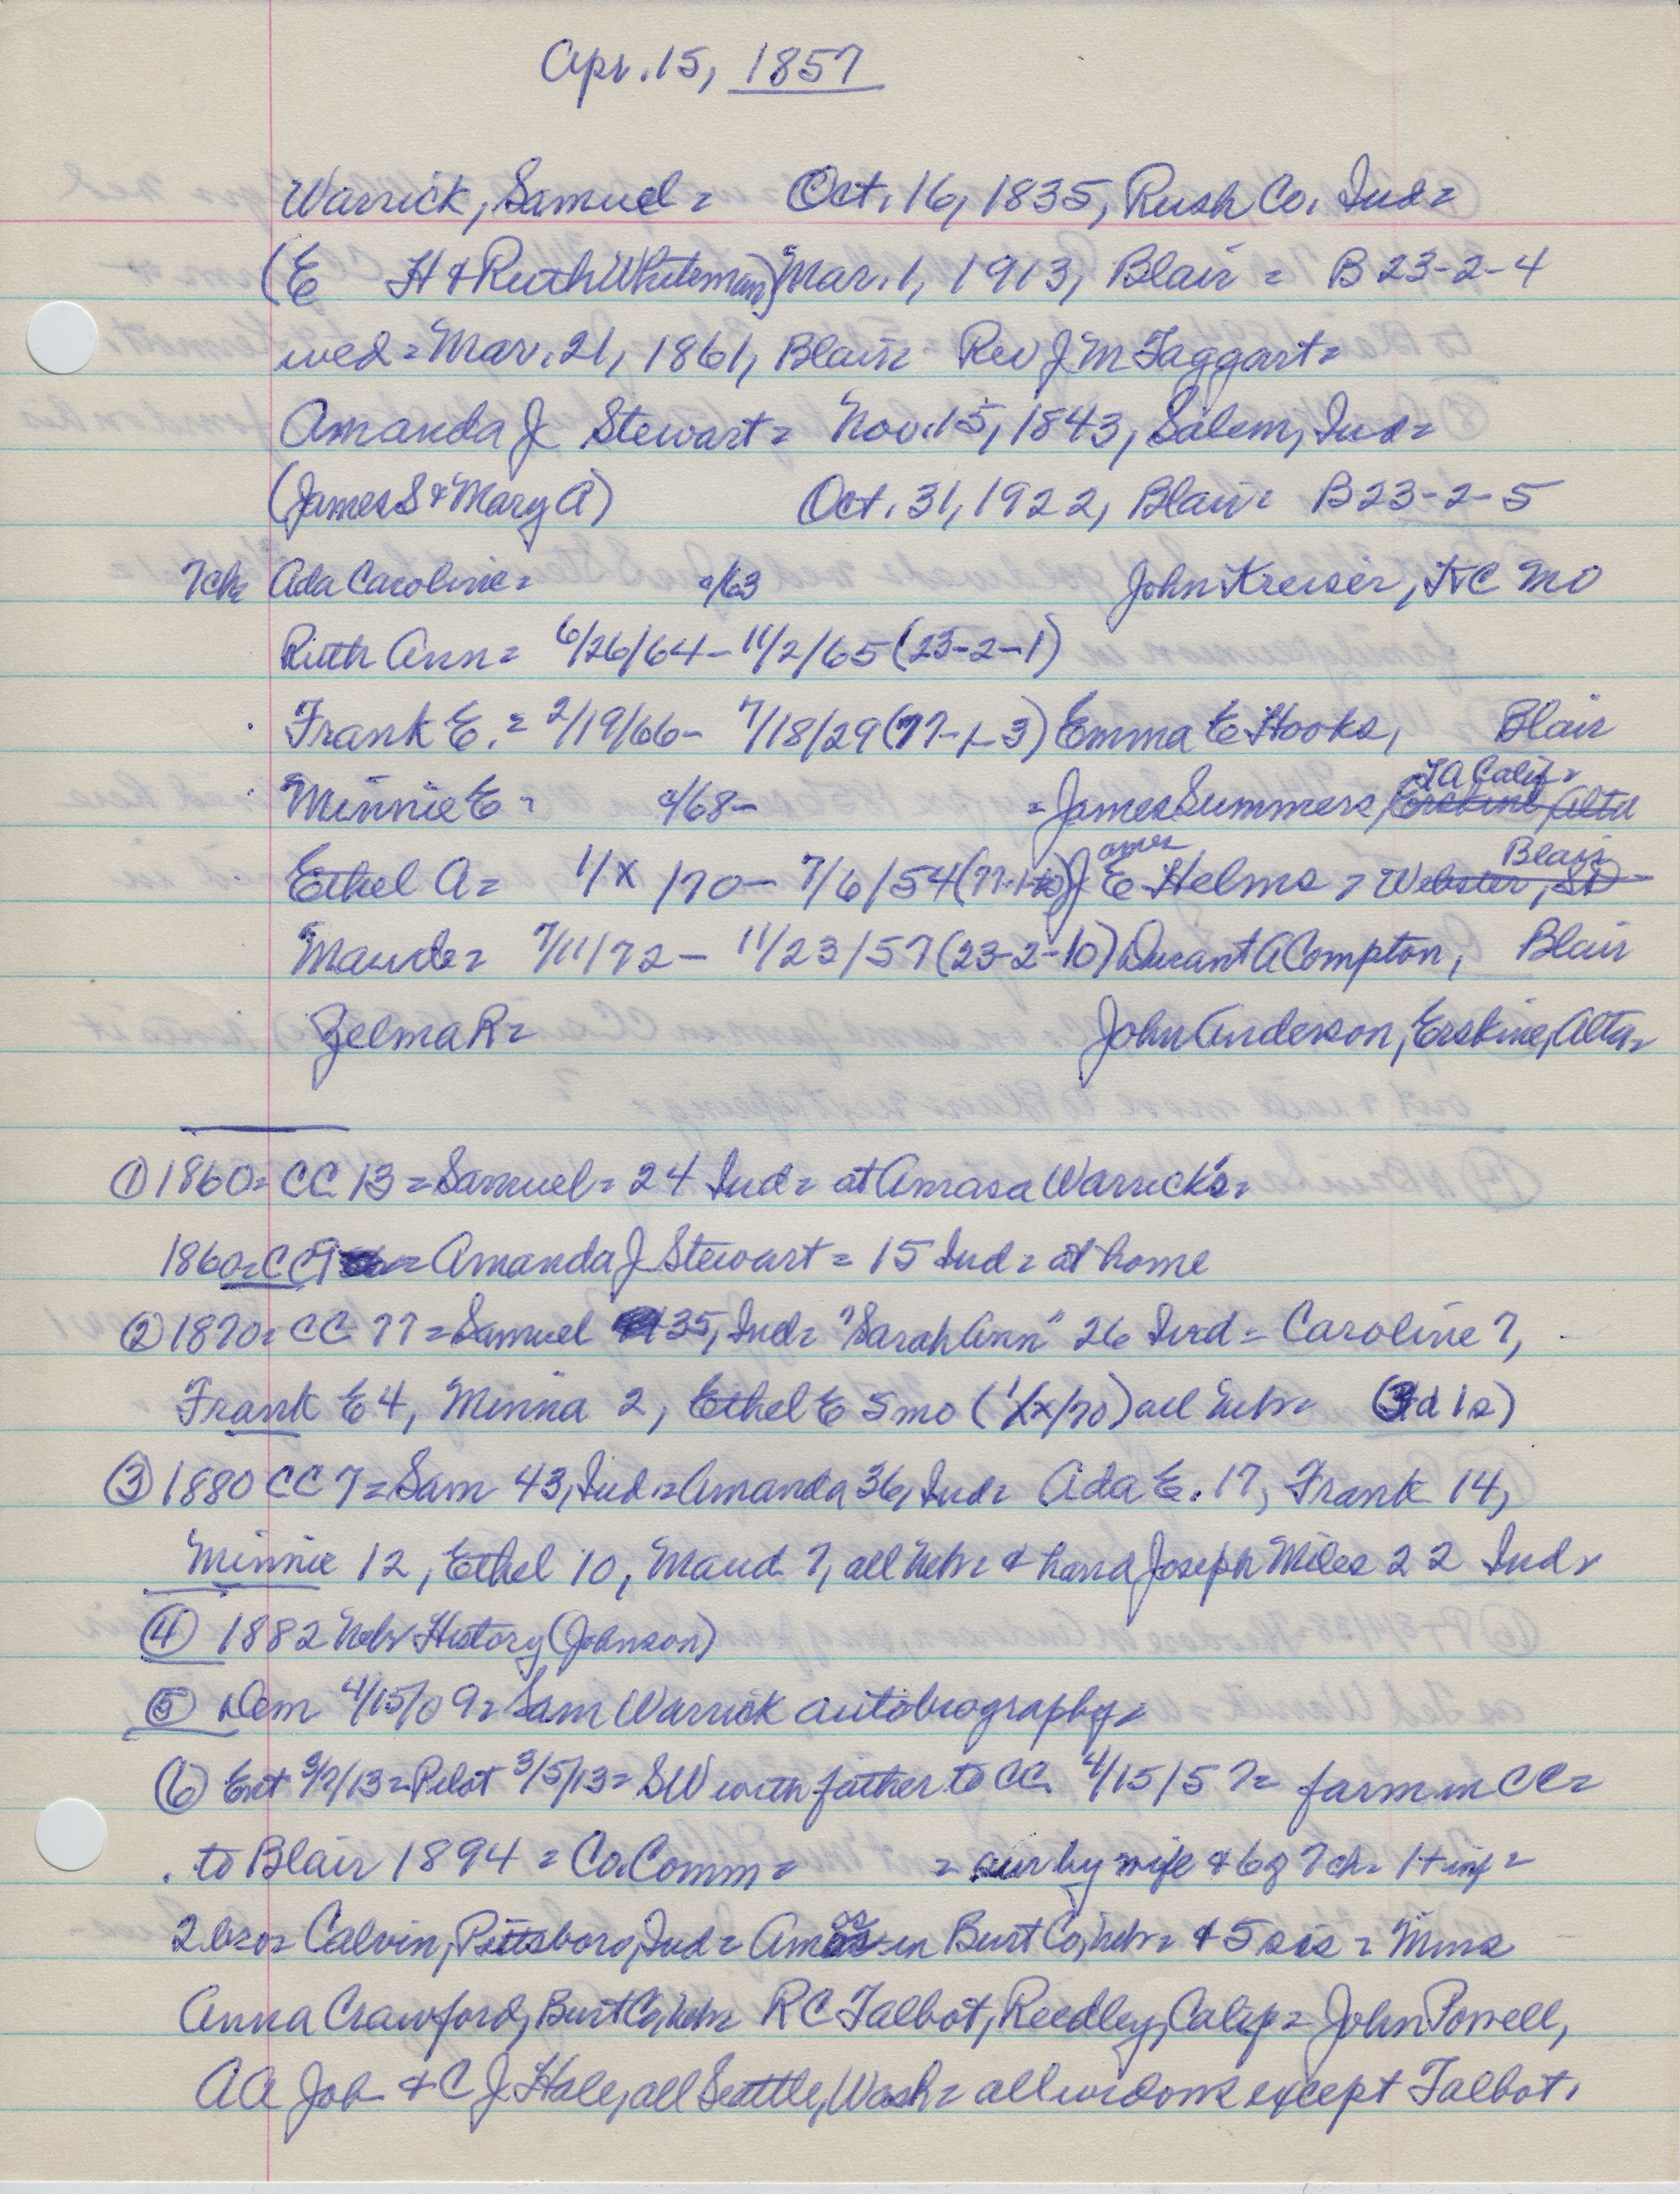 Apr. 15, 1857
Warrick, Samuel = Oct. 16, 1835, Rush Co. Ind =
(E H & Ruth Whiteman) Mar. 1, 1913, Blair = B 23-2-4
wed = Mar. 21, 1861, Blair = Rev J M Taggart =
Amanda J Stewart = Nov. 15, 1843, Salem, Ind =
(James S & Mary A) Oct. 31, 1922, Blair = B 23-2-5
7ch= Ada Caroline = c/63 John Kreiser, KC MO
Ruth Ann = 6/26/64 - 11/2/65 (23-2-1)
Frank E. = 2/19/66 - 7/18/29 (77-1-3) Emma E Hooks, Blair
LA Calif =
Minnie E = c/68 - = James Summers, Erskine, Alta
ames Blair
Ethel A = 1/x /70 - 7/6/54 (77-1-10) J E Helms = Webster, SD
Maude = 7/11/72 - 11/23/57 (23-2-10) Durant A Compton, Blair
Zelma R = John Anderson, Erskine, Alta =
① 1860 = CC 13 = Samuel = 24 Ind = at Amasa Warrick's =
1860 = CC 9 = Amanda J Stewart = 15 Ind = at home
② 1870 = CC 77 = Samuel 35, Ind = "Sarah Ann" 26 Ind = Caroline 7,
Frank E 4, Minna 2, Ethel E 5 mo (1/x/70) all Neb =
③ 1880 CC 7 = Sam 43, Ind = Amanda 36, Ind = Ada E. 17, Frank 14,
Minnie 12, Ethel 10, Maud 7, all Neb = & hand Joseph Miles 22 Ind =
④ 1882 Neb History (Johnson)
⑤ Dem 4/15/09 = Sam Warrick autobiography =
⑥ Ent 3/7/13 = Pilot 3/5/13 = SW with father to CC 4/15/57 = farm in CC =
to Blair 1894 = Co. Comm = = sur by wife & 6 of 7 ch = 1 + inf =
2 bro = Calvin, Pittsboro, Ind = Amos in Burt Co, Neb = & 5 sis = Mmes
Anna Crawford, Burt Co, Neb = R C Talbot, Reedley, Calif = John Powell,
A A Job & C J Hale, all Seattle, Wash = all widows except Talbot.